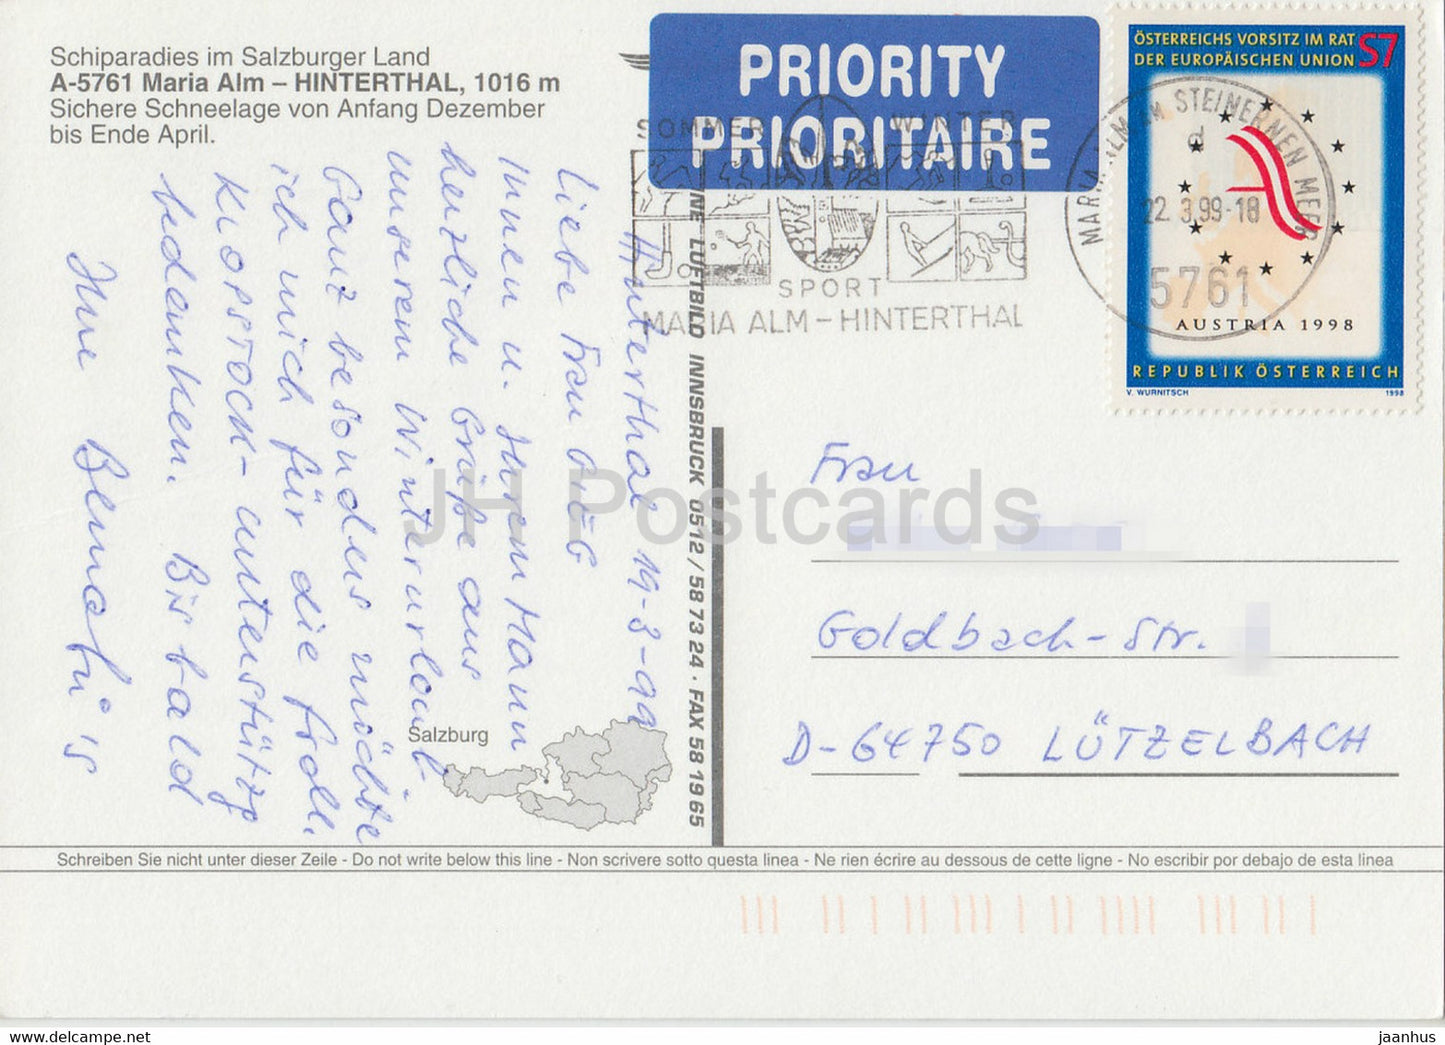 Schiparadies im Salzburger Land
A-5761 Maria Alm – HINTERTHAL, 1016 m
Sichere Schneelage von Anfang Dezember
bis Ende April.
PRIORITY
PRIORITAIRE
ÖSTERREICHS VORSITZ IM RAT
DER EUROPÄISCHEN UNION
S7
AUSTRIA 1998
REPUBLIK ÖSTERREICH
V. WURNITSCH
1998
MARIA ALM AM STEINERNEN MEER
d
22.3.99-18
5761
SOMMER WINTER
SPORT
MARIA ALM – HINTERTHAL
NE LUFTBILD INNSBRUCK 0512 / 58 73 24 · FAX 58 19 65
Hinterthal 19-3-99
Liebe Frau
Ihnen u. Ihrem Mann
herzliche Grüße aus
unserem Winterurlaub
Ganz besonders möchte
ich mich für die
bedanken. Bis bald
Ihre
Frau
Goldbach-Str.
D-64750 LÜTZELBACH
Salzburg
Schreiben Sie nicht unter dieser Zeile - Do not write below this line - Non scrivere sotto questa linea - Ne rien écrire au dessous de cette ligne - No escribir por debajo de esta linea
JH Postcards
www.delcampe.net
jaanhus